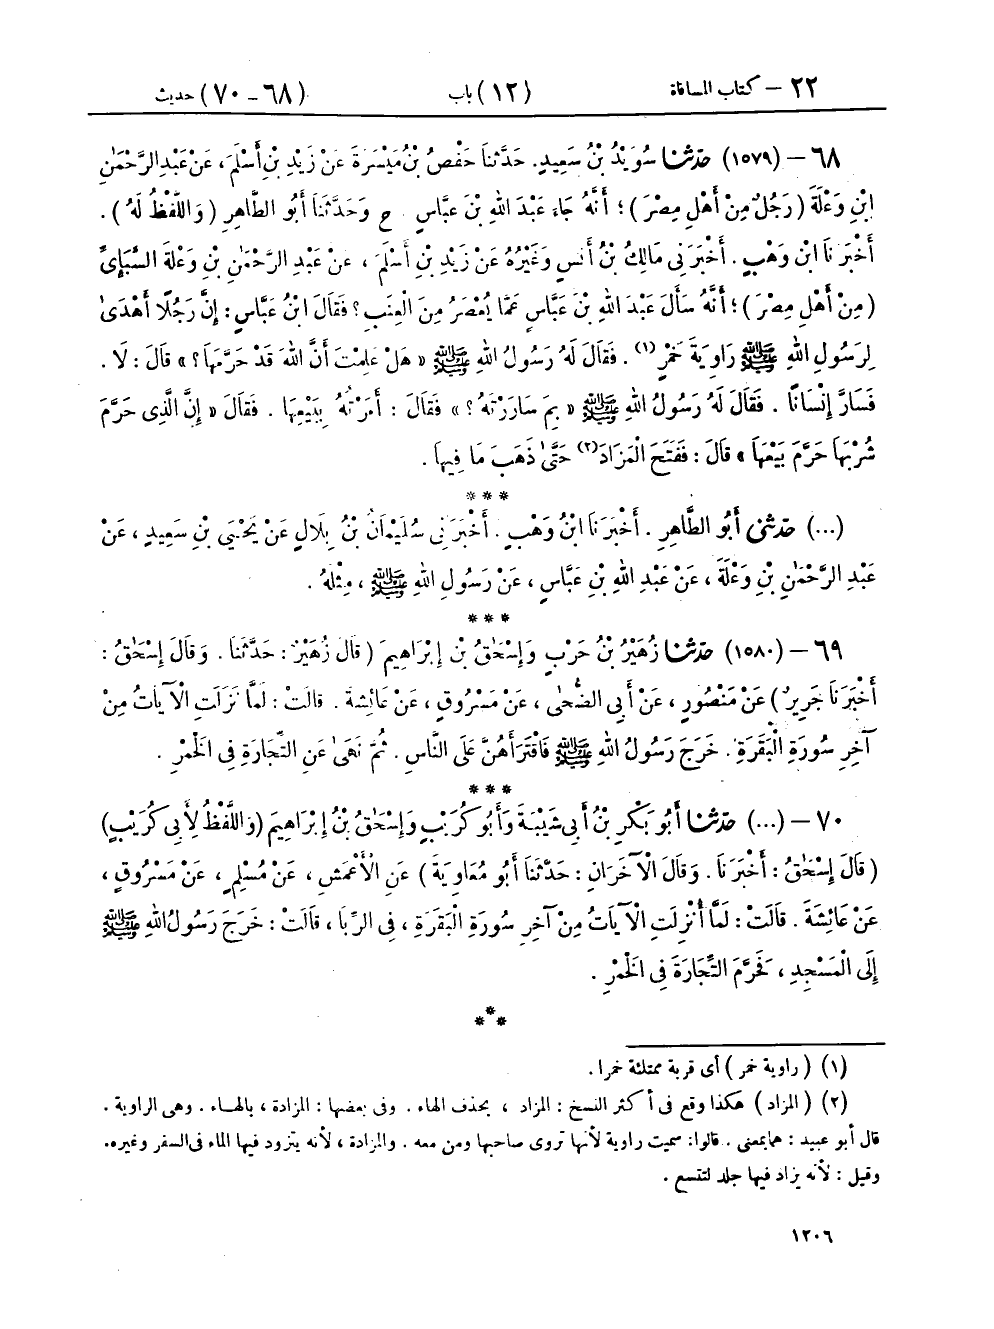 ٢٢ – كتاب المساقاة (١٢) باب (٦٨ – ٧٠) حديث
٦٨ – (١٥٧٩) حَدَّثَنَا سُوَيْدُ بْنُ سَعِيدٍ. حَدَّثَنَا حَفْصُ بْنُ مَيْسَرَةَ عَنْ زَيْدِ بْنِ أَسْلَمَ، عَنْ عَبْدِ الرَّحْمٰنِ
ابْنِ وَعْلَةَ (رَجُلٌ مِنْ أَهْلِ مِصْرَ)؛ أَنَّهُ جَاءَ عَبْدَ اللهِ بْنَ عَبَّاسٍ. ح وَحَدَّثَنَا أَبُو الطَّاهِرِ (وَاللَّفْظُ لَهُ).
أَخْبَرَنَا ابْنُ وَهْبٍ. أَخْبَرَنِي مَالِكُ بْنُ أَنَسٍ وَغَيْرُهُ عَنْ زَيْدِ بْنِ أَسْلَمَ، عَنْ عَبْدِ الرَّحْمٰنِ بْنِ وَعْلَةَ السَّبَإِيِّ
(مِنْ أَهْلِ مِصْرَ)؛ أَنَّهُ سَأَلَ عَبْدَ اللهِ بْنَ عَبَّاسٍ عَمَّا يُعْصَرُ مِنَ الْعِنَبِ؟ فَقَالَ ابْنُ عَبَّاسٍ: إِنَّ رَجُلًا أَهْدَىٰ
لِرَسُولِ اللهِ ﷺ رَاوِيَةَ خَمْرٍ(١). فَقَالَ لَهُ رَسُولُ اللهِ ﷺ « هَلْ عَلِمْتَ أَنَّ اللهَ قَدْ حَرَّمَهَا؟ » قَالَ: لَا.
فَسَارَّ إِنْسَانًا. فَقَالَ لَهُ رَسُولُ اللهِ ﷺ « بِمَ سَارَرْتَهُ؟ » فَقَالَ: أَمَرْتُهُ بِبَيْعِهَا. فَقَالَ « إِنَّ الَّذِي حَرَّمَ
شُرْبَهَا حَرَّمَ بَيْعَهَا » قَالَ: فَفَتَحَ الْمَزَادَ(٢) حَتَّىٰ ذَهَبَ مَا فِيهَا.
***
(...) حَدَّثَنِي أَبُو الطَّاهِرِ. أَخْبَرَنَا ابْنُ وَهْبٍ. أَخْبَرَنِي سُلَيْمَانُ بْنُ بِلَالٍ عَنْ يَحْيَىٰ بْنِ سَعِيدٍ، عَنْ
عَبْدِ الرَّحْمٰنِ بْنِ وَعْلَةَ، عَنْ عَبْدِ اللهِ بْنِ عَبَّاسٍ، عَنْ رَسُولِ اللهِ ﷺ، مِثْلَهُ.
***
٦٩ – (١٥٨٠) حَدَّثَنَا زُهَيْرُ بْنُ حَرْبٍ وَإِسْحَٰقُ بْنُ إِبْرَاهِيمَ (قَالَ زُهَيْرٌ: حَدَّثَنَا. وَقَالَ إِسْحَٰقُ:
أَخْبَرَنَا جَرِيرٌ) عَنْ مَنْصُورٍ، عَنْ أَبِي الضُّحَىٰ، عَنْ مَسْرُوقٍ، عَنْ عَائِشَةَ. قَالَتْ: لَمَّا نَزَلَتِ الْآيَاتُ مِنْ
آخِرِ سُورَةِ الْبَقَرَةِ. خَرَجَ رَسُولُ اللهِ ﷺ فَاقْتَرَأَهُنَّ عَلَى النَّاسِ. ثُمَّ نَهَىٰ عَنِ التِّجَارَةِ فِي الْخَمْرِ.
***
٧٠ – (...) حَدَّثَنَا أَبُو بَكْرِ بْنُ أَبِي شَيْبَةَ وَأَبُو كُرَيْبٍ وَإِسْحَٰقُ بْنُ إِبْرَاهِيمَ (وَاللَّفْظُ لِأَبِي كُرَيْبٍ)
(قَالَ إِسْحَٰقُ: أَخْبَرَنَا. وَقَالَ الْآخَرَانِ: حَدَّثَنَا أَبُو مُعَاوِيَةَ) عَنِ الْأَعْمَشِ، عَنْ مُسْلِمٍ، عَنْ مَسْرُوقٍ،
عَنْ عَائِشَةَ. قَالَتْ: لَمَّا أُنْزِلَتِ الْآيَاتُ مِنْ آخِرِ سُورَةِ الْبَقَرَةِ، فِي الرِّبَا، قَالَتْ: خَرَجَ رَسُولُ اللهِ ﷺ
إِلَى الْمَسْجِدِ، فَحَرَّمَ التِّجَارَةَ فِي الْخَمْرِ.
***
(١) (راوية خمر) أى قربة ممتلئة خمرا.
(٢) (المزاد) هكذا وقع فى أكثر النسخ: المزاد، بحذف الهاء. وفى بعضها: المزادة، بالهاء. وهى الراوية.
قال أبو عبيد: هما بمعنى. قالوا: سميت راوية لأنها تروى صاحبها ومن معه. والمزادة، لأنه يتزود فيها الماء فى السفر وغيره.
وقيل: لأنه يزاد فيها جلد لتتسع.
١٢٠٦